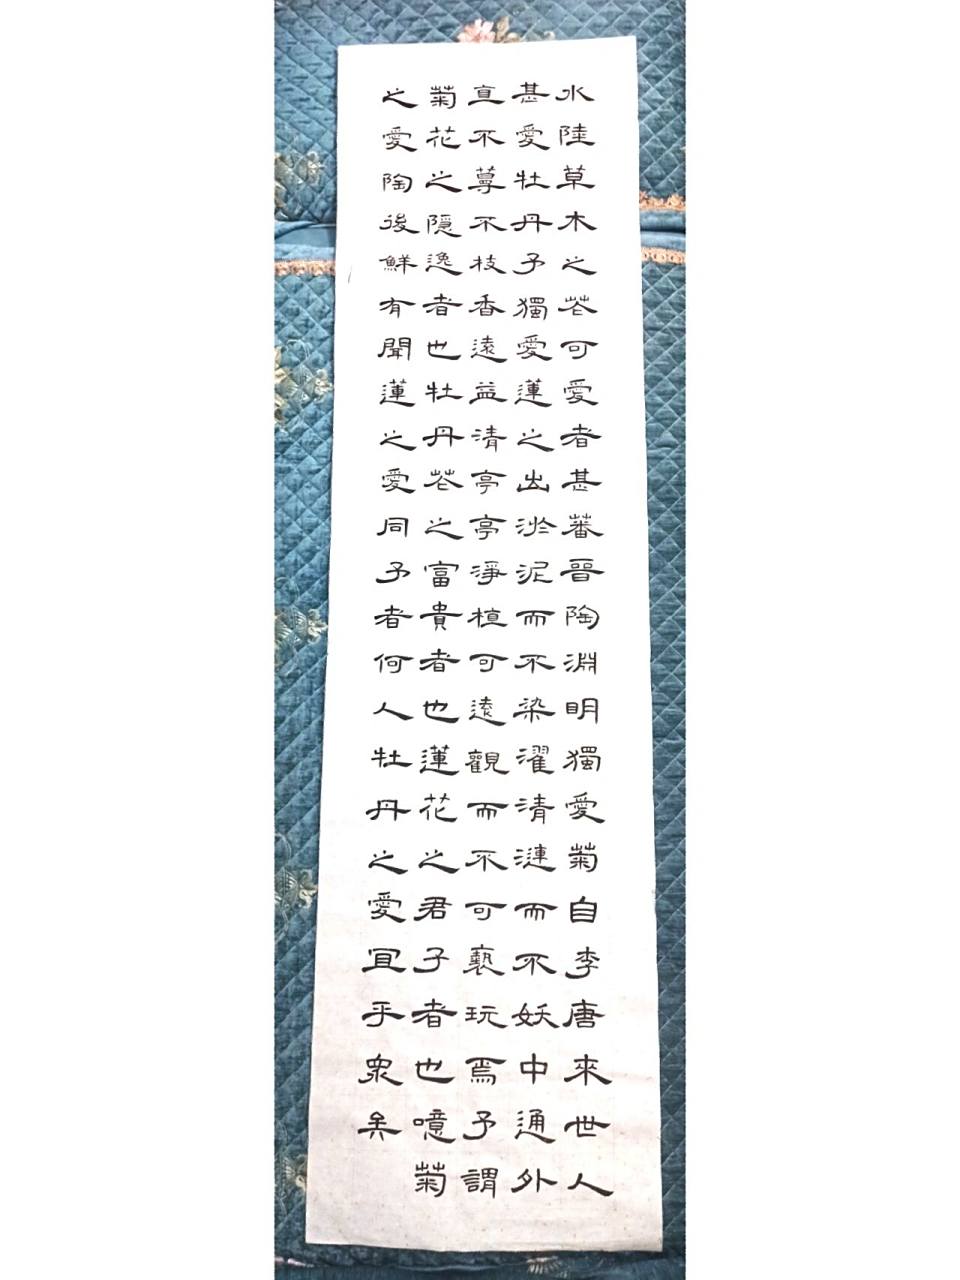 水陸草木之花可愛者甚蕃晉陶淵明獨愛菊自李唐來世人
甚愛牡丹予獨愛蓮之出淤泥而不染濯清漣而不妖中通外
直不蔓不枝香遠益清亭亭淨植可遠觀而不可褻玩焉予謂
菊花之隱逸者也牡丹花之富貴者也蓮花之君子者也噫菊
之愛陶後鮮有聞蓮之愛同予者何人牡丹之愛宜乎眾矣